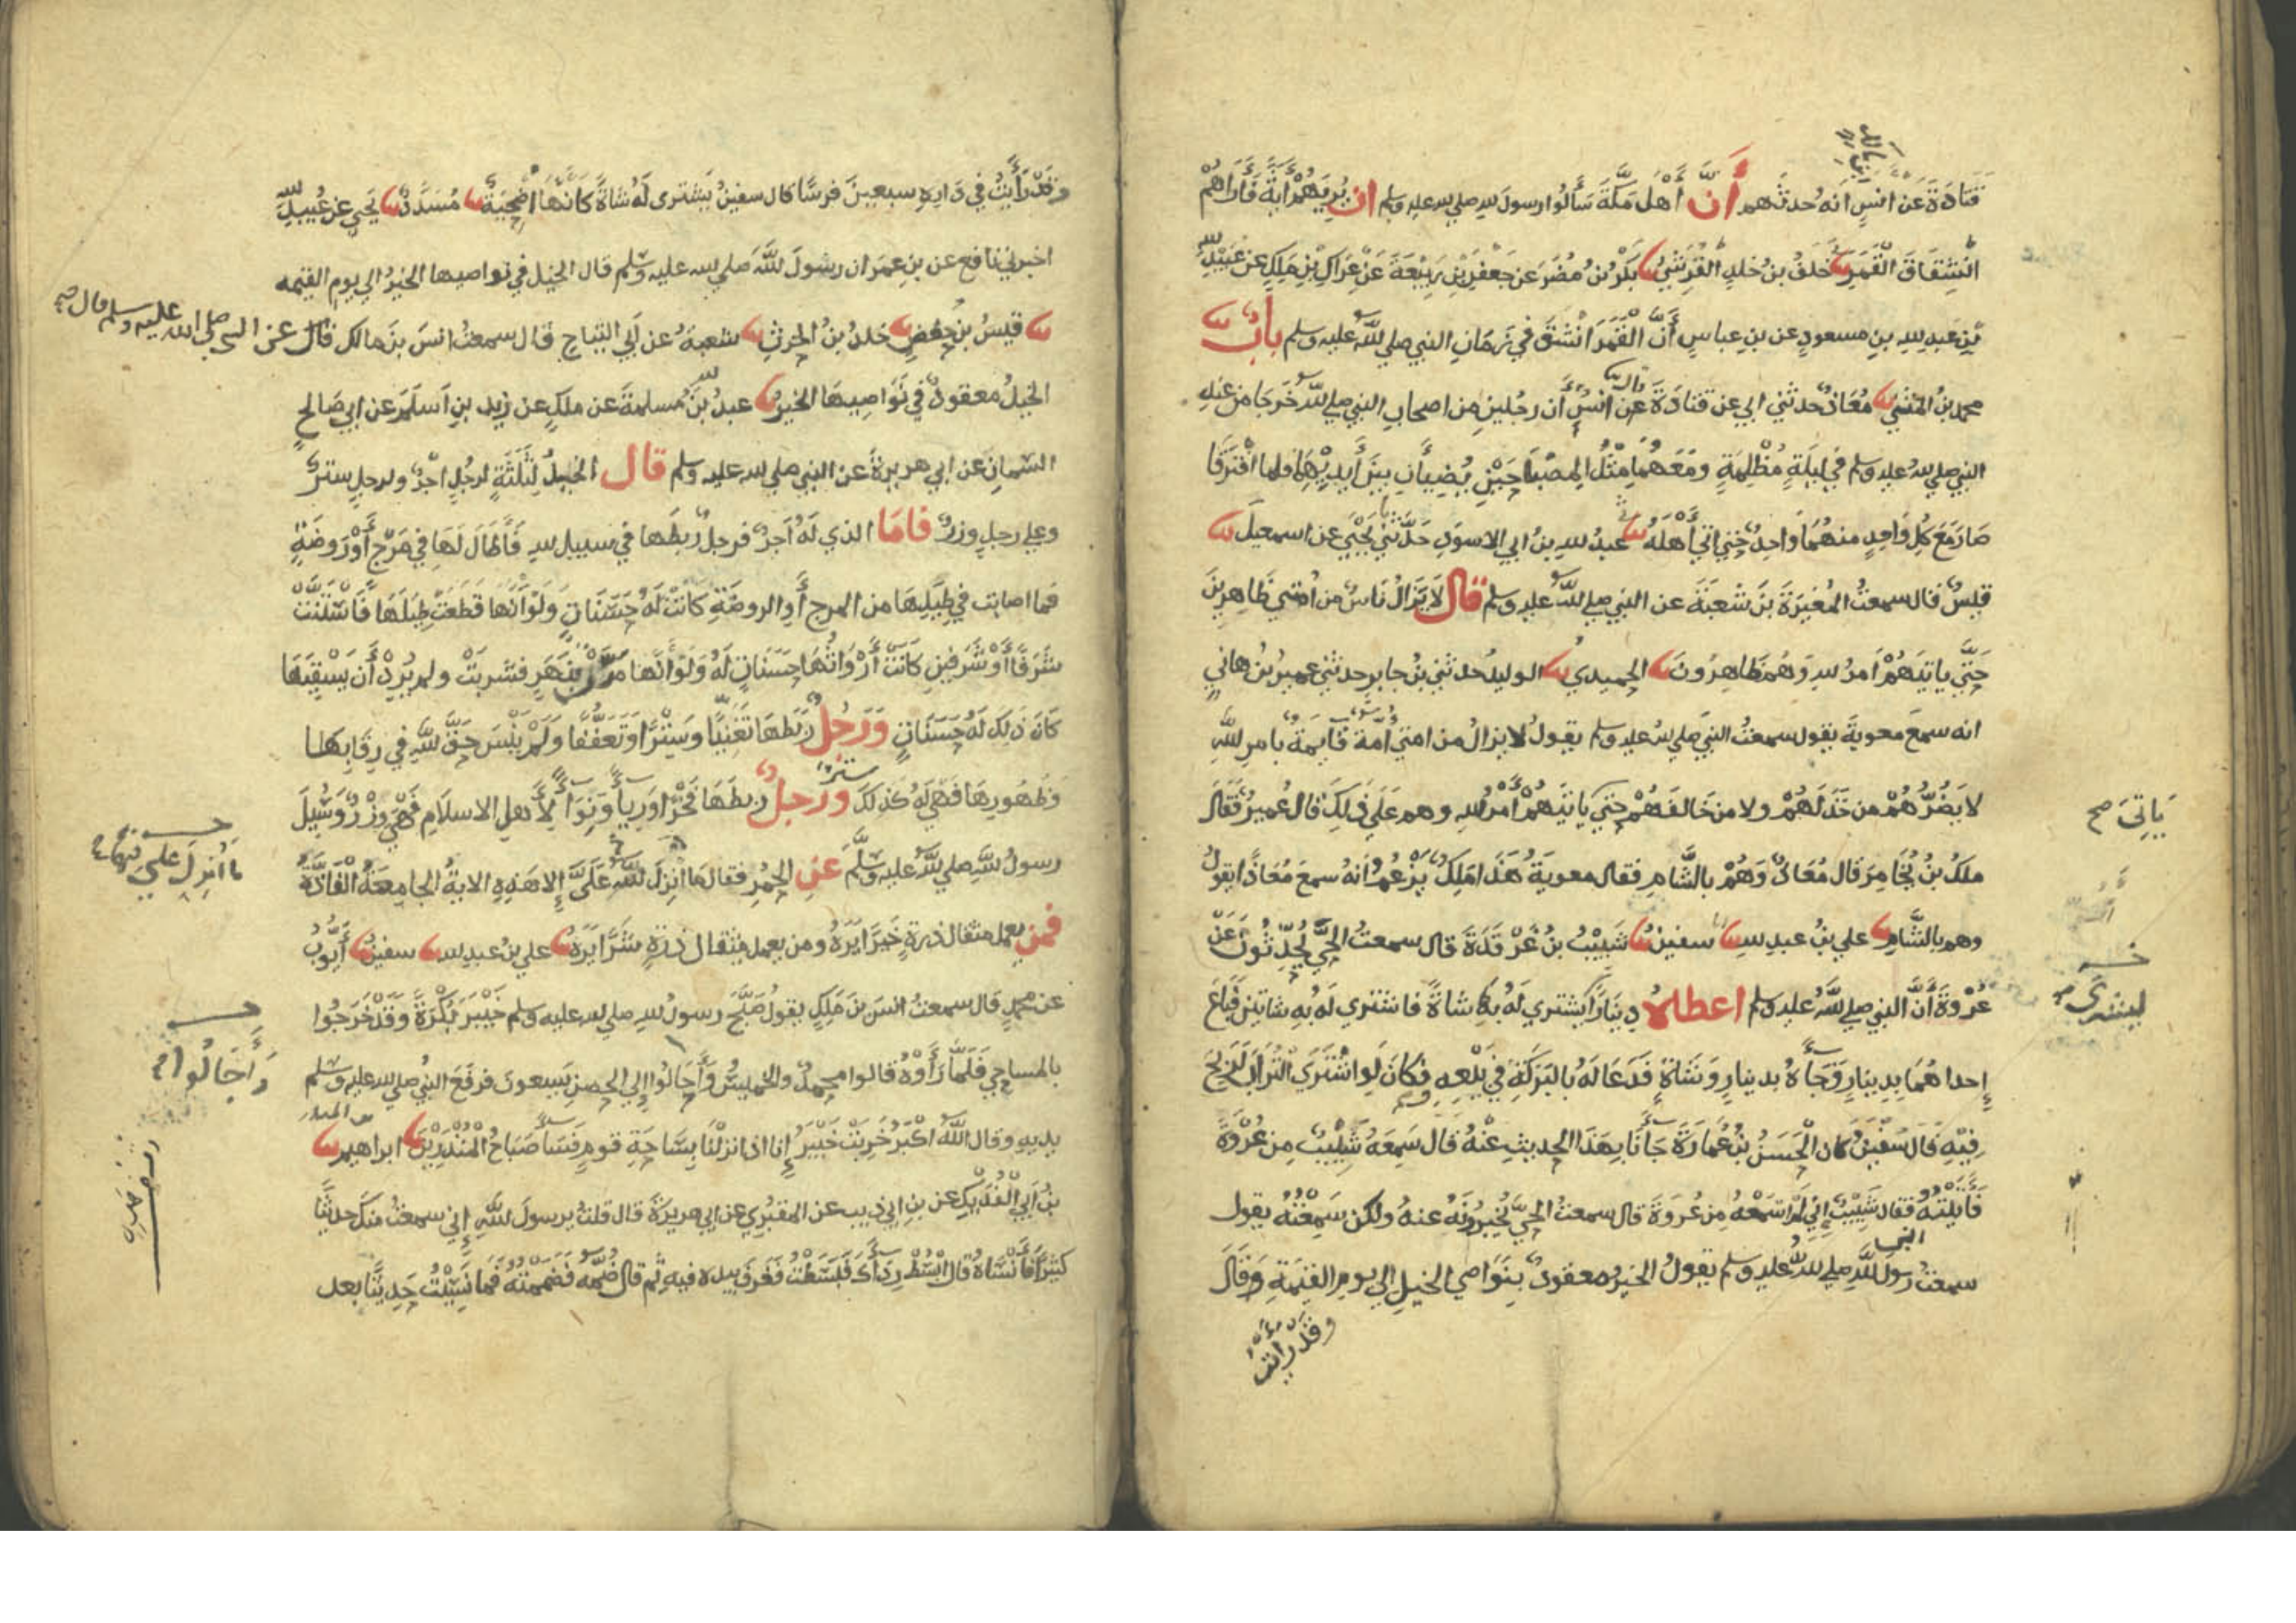 قَتَادَةَ عَن انسٍ انه حُدثهم أَنَّ أَهْلَ مَكَّةَ سَأَلُوا رسولَ لله صلي لله عليه وسلم ان يُرِيَهُمْ آيَةً فَأَرَاهُمْ
انْشِقَاقَ الْقَمَرِ نا خَلَفُ بنُ خلدٍ القُرَشِيُّ نا بَكْرُ بنُ مُضَرَ عَن جَعْفَرِ بْنِ رَبِيْعَةَ عَنْ عِرَاكِ بْنِ مَلِكٍ عن عُبَيْدِ لله
بْنِ عَبدِ لله بنِ مسعودٍ عن بنِ عباسٍ أَنَّ الْقَمَرَ انْشَقَّ فِي زَمَانِ النبي صلي لله عليه وسلم بابٌ نا
محمد بنُ المثني نا مُعَاذٌ حدثني ابي عن قتادَةَ عن انسٍ أَن رجُلينِ مِن اصحابِ النبي صلي لله خَرَجَا من عندِ
النبي صلي لله عليه وسلم في ليلَةٍ مُظْلِمَةٍ ومَعَهُمَا مِثْلُ المِصْبَاحَيْنِ يُضِيآنِ بينَ أَيدِيْهِمَا فلما افْتَرَقَا
صَارَ مَعَ كُلِّ وَاحِدٍ منهُمَا وَاحِدٌ حَتَّي اتي أَهْلَهُ نا عبدُ لله بنُ ابي الاسودِ حَدَّثَنِي يَحْيَي عن اسمعيلَ نا
قيسٌ قال سمعتُ المُغِيرَةَ بنَ شُعْبَةَ عن النبي صلي لله عليه وسلم قال لَا يَزَالُ نَاسٌ من امَّتي ظَاهِرِينَ
حَتَّي ياتيَهُمْ امرُ لله وَهُم ظَاهِرُونَ نا الحميديُّ نا الوليدُ حدثني بنُ جابرٍ حدثني عميرُ بنُ هاني
انه سمعَ معويةَ يقول سمعتُ النبيَّ صلي لله عليه وسلم يقولُ لا يزالُ من امتي أُمَّةٌ قايمَةٌ بامرِ لله
لا يَضُرُّهُمْ من خَذَلَهُمْ ولا من خَالَفَهُمْ حتي ياتيَهُمْ أَمْرُ لله وهم عَلَي ذَلِكَ قالَ عُميرٌ فقَالَ
ملكُ بنُ يُخَامِرَ قال مُعَاذٌ وَهُمْ بالشَّامِ فقال معويَةُ هَذَا مَلِكٌ يَزْعُمُ أنهُ سمعَ مُعَاذًا يقولُ
وهم بالشَّامِ نا علي بنُ عبدِ لله نا سفينُ نا شَبِيْبُ بنُ غَرْقَدَةَ قال سمعتُ الحيَّ يُحَدِّثُونَ عَنْ
عُرْوَةَ أَنَّ النبي صلي لله عليه وسلم اعطاه دِينَارًا يشتري لَهُ بهِ شاةً فاشتري له بهِ شاتينِ فَبَاعَ
إحداهُمَا بدِينارٍ وَجَاءهُ بدينارٍ وَشَاةٍ فَدَعَا لهُ بالبَرَكَةِ فِي بَيْعِهِ وَكَانَ لَو اشْتَرَي التُّرَابَ لَرَبِحَ
فِيْهِ قَالَ سُفْينُ كان الْحَسَنُ بْنُ عُمَارَةَ جَاءَنَا بِهَذَا الحديثِ عنهُ قالَ سَمِعَهُ شَبِيْبٌ مِن عُرْوَةَ
فَأَتَيْتُهُ فقال شَبِيْبٌ إِنِّي لَمْ اسْمَعْهُ مِن عُروَةَ قال سمعتُ الحيَّ يُخْبِرُونَهُ عنهُ ولكن سَمِعْتُهُ يقول
سمعتُ رسولَ لله النبي صلي لله عليه وسلم يقولُ الخيرُ معقودٌ بِنَوَاصي الخيلِ الي يومِ القِيمَةِ وَقَالَ
وقَدْ رَأَيْتُ
يَاتِيَ صح
ليشتري
وقَدْ رَأَيْتُ في دَارِهِ سبعينَ فرسًا قال سفينُ يَشْتري لهُ شاةً كَأَنَّهَا اضْحِيَةٌ نا مُسَدَّدٌ نا يَحيي عن عُبيدِ لله
اخبرني نافع عن بنِ عمرَ ان رسولَ لله صلي لله عليه وسلم قال الخيل في نواصيها الخيرُ الي يوم القيمه
نا قيسُ بنُ حفصٍ نا خلدُ بنُ الحرثِ نا شعبةُ عن ابي التياحِ قال سمعتُ انسَ بنَ مالك قال عن النبي صلي الله عليه وسلم قال صح
الخيلُ معقودٌ في نَوَاصِيهَا الخيرُ نا عبدُ لله بنُ مُسلمةَ عن ملكٍ عن زيدِ بنِ اسلمَ عن ابي صَالحٍ
السَّمانِ عن ابي هريرةَ عن النبي صلي لله عليه وسلم قال الخيلُ لِثَلَثَةٍ لرجُلٍ اجْرٌ ولرجلٍ سترٌ
وعلي رجلٍ وزرٌ فامَا الذي لَهُ اجرٌ فرجلٌ ربطَها في سبيل لله فَأَطَالَ لَهَا فِي مَرْجٍ أَوْ رَوضَةٍ
فما اصابت فِي طِيَلِهَا من المرج أَو الروضَةِ كَانتْ لَهُ حَسَنَاتٍ وَلَوْ أَنَّهَا قَطَعَتْ طِيَلَهَا فَاسْتَنَّتْ
شَرَفًا أَوْ شَرَفَيْنِ كَانَتْ أَرْوَاثُهَا حَسَنَاتٍ لَهُ وَلَوْ أَنَّهَا مَرَّتْ بِنَهَرٍ فشَرِبَتْ ولم يُرِدْ أَن يَسْقِيَهَا
كَانَ ذَلِكَ لَهُ حَسَنَاتٍ وَرَجُلٌ رَبَطَهَا تَغَنِّيًا وَسِتْرًا وَتَعَفُّفًا وَلَمْ يَنْسَ حَقَّ لله فِي رِقَابِهَا
وَظُهُورِهَا فَهِيَ لَهُ كذلكَ سترٌ وَرَجلٌ ربطَهَا فَخْرًا وَرِيَاءً وَنِوَاءً لِأَهلِ الاسلَامِ فَهْيَ وِزْرٌ وَسُئِلَ
رسولُ لله صلي لله عليه وسلَّمَ عَنِ الحُمُرِ فقال مَا انْزَلَ لله عَلَيَّ إِلا هَذِهِ الايةُ الجامِعَةُ الْفَاذَّةُ
فمن يعمل مثقال ذرةٍ خَيرًا يَرَهُ ومن يعمل مثقال ذرةٍ شَرًّا يَرَهُ نا علي بنُ عبدِ لله نا سفينُ نا أَيُّوبُ
عن محمدٍ قال سمعتُ انسَ بنَ مَلِكٍ يقولُ صَبَّحَ رسولُ لله صلي لله عليه وسلم خَيْبَرَ بُكْرَةً وَقَدْ خَرَجُوا
بالمساحي فَلَمَّا رَأَوْهُ قالوا محمدٌ والخميسُ وَأَحَالُوا إلي الحِصنِ يَسعونَ فرفعَ النبي صلي لله عليه وسلم
يديهِ وقال اللهُ اكْبَرُ خَرِبَتْ خَيْبَرُ إنا اذا نزلْنَا بِسَاحَةِ قومٍ فَسَاءَ صَبَاحُ الْمُنْذَرِيْنَ نا ابراهيم بن المنذر نا
بنُ ابي الْفُدَيكِ عن بنِ ابي ذيبٍ عن المقبُري عن ابي هريرةَ قال قلتُ يرسولَ لله إِني سمعتُ منكَ حديثًا
كثيرًا فَأَنْسَاهُ قال ابْسُطْ رِدَاءَكَ فَبَسَطْتُ فَغَرفَ بيده فيهِ ثُم قال ضُمَّهُ فضَمَمْتُهُ فَمَا نَسِيْتُ حَدِيثًا بعد
ما أُنْزِلَ عَلَيَّ فيها
وَأَجَالُوا